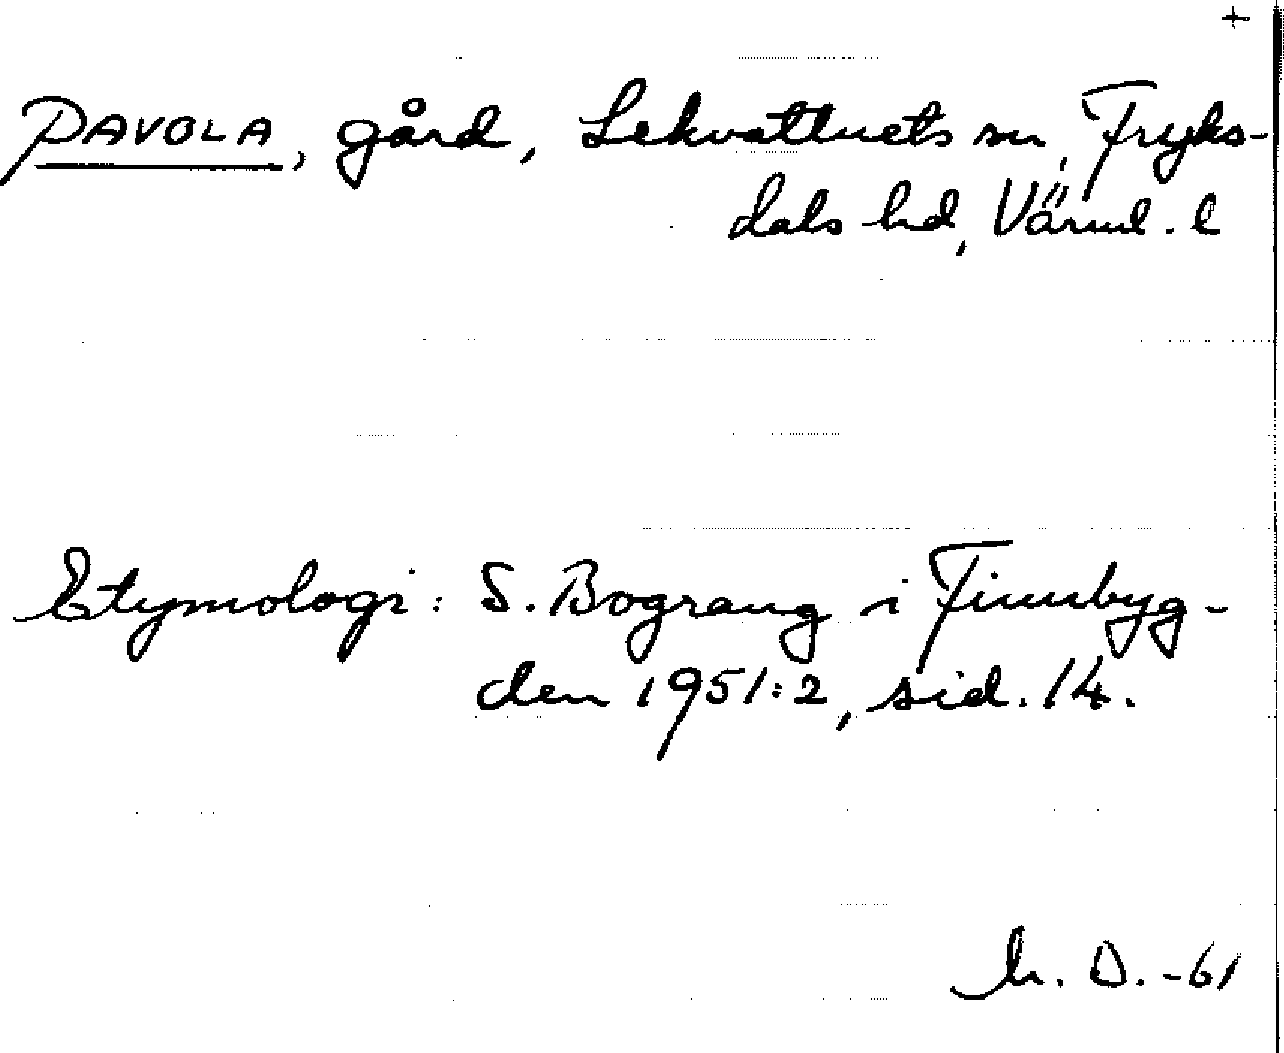 +
PAVOLA, gård, Lekvattnets sn, Fryks-
dals hd, Värml. l
Etymologi: S. Bograng i Finnbyg-
den 1951:2, sid. 14.
h. D. -61